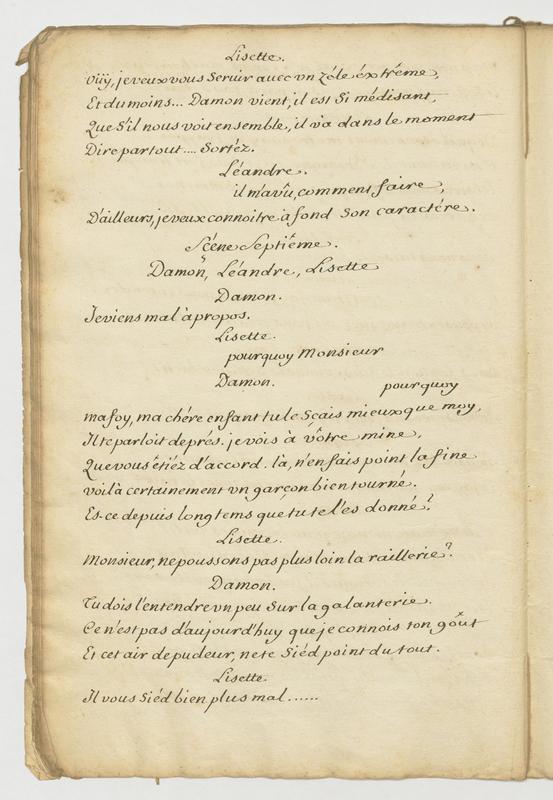 Lisette.
Oüÿ, je veux vous Servir avec vn Zéle éxtréme,
Et du moins... Damon vient, il est Si médisant,
Que S'il nous voit ensemble, il va dans le moment
Dire partout.... Sortéz.
Léandre.
il m'a vû, comment faire,
D'ailleurs, je veux connoitre à fond Son caractére.
Scéne Septiéme.
Damon, Léandre, Lisette
Damon.
Je viens mal à propos.
Lisette.
pourquoy Monsieur
Damon.
pourquoy
ma foy, ma chére enfant tu le Sçais mieux que moy,
Il te parloit de prés. je vois à vôtre mine,
Que vous étiéz d'accord. là, n'en fais point la fine
voilà certainement vn garçon bien tourné.
Es-ce depuis longtems que tu te l'es donné?
Lisette.
Monsieur, ne poussons pas plus loin la raillerie?
Damon.
Tu dois l'entendre vn peu Sur la galanterie.
Ce n'est pas d'aujourd'huy que je connois ton goût
Et cet air de pudeur, ne te Siéd point du tout.
Lisette.
Il vous Siéd bien plus mal......